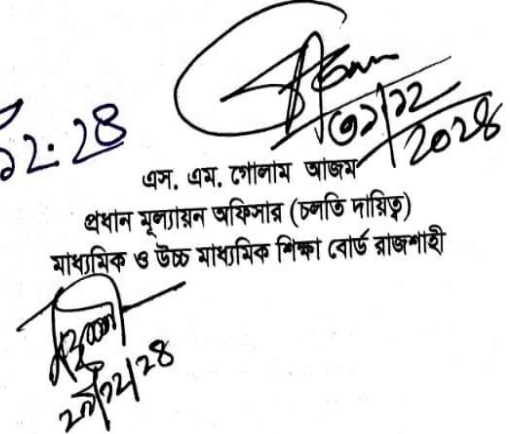 ১২.২৪
৩১/১২/২০২৪
এস. এম. গোলাম আজম
প্রধান মূল্যায়ন অফিসার (চলতি দায়িত্ব)
মাধ্যমিক ও উচ্চ মাধ্যমিক শিক্ষা বোর্ড রাজশাহী